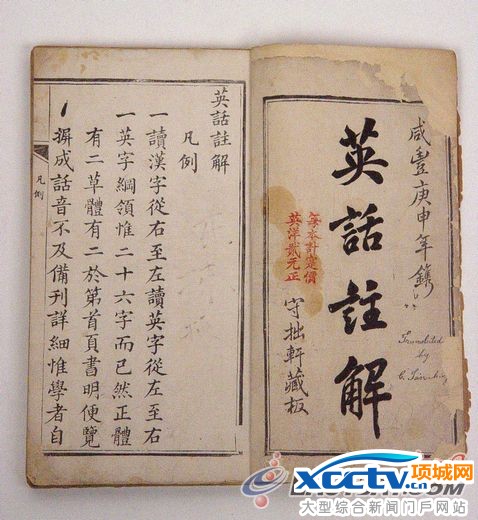 咸豐庚申年鐫
英話註解
Translated
by
每本計寔價
英洋貳元正
守拙軒藏板
英話註解
凡例
一讀漢字從右至左讀英字從左至右
一英字綱領惟二十六字而已然正體
有二草體有二於第首頁書明便覽
摒成話音不及備刊詳細惟學者自
凡例
xcctv.com 项城网
大型综合新闻门户网站